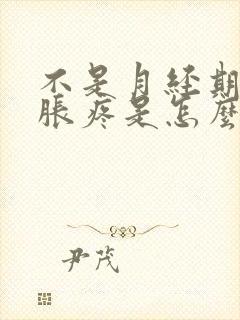 不是月经期
胀疼是怎麼
尹茂